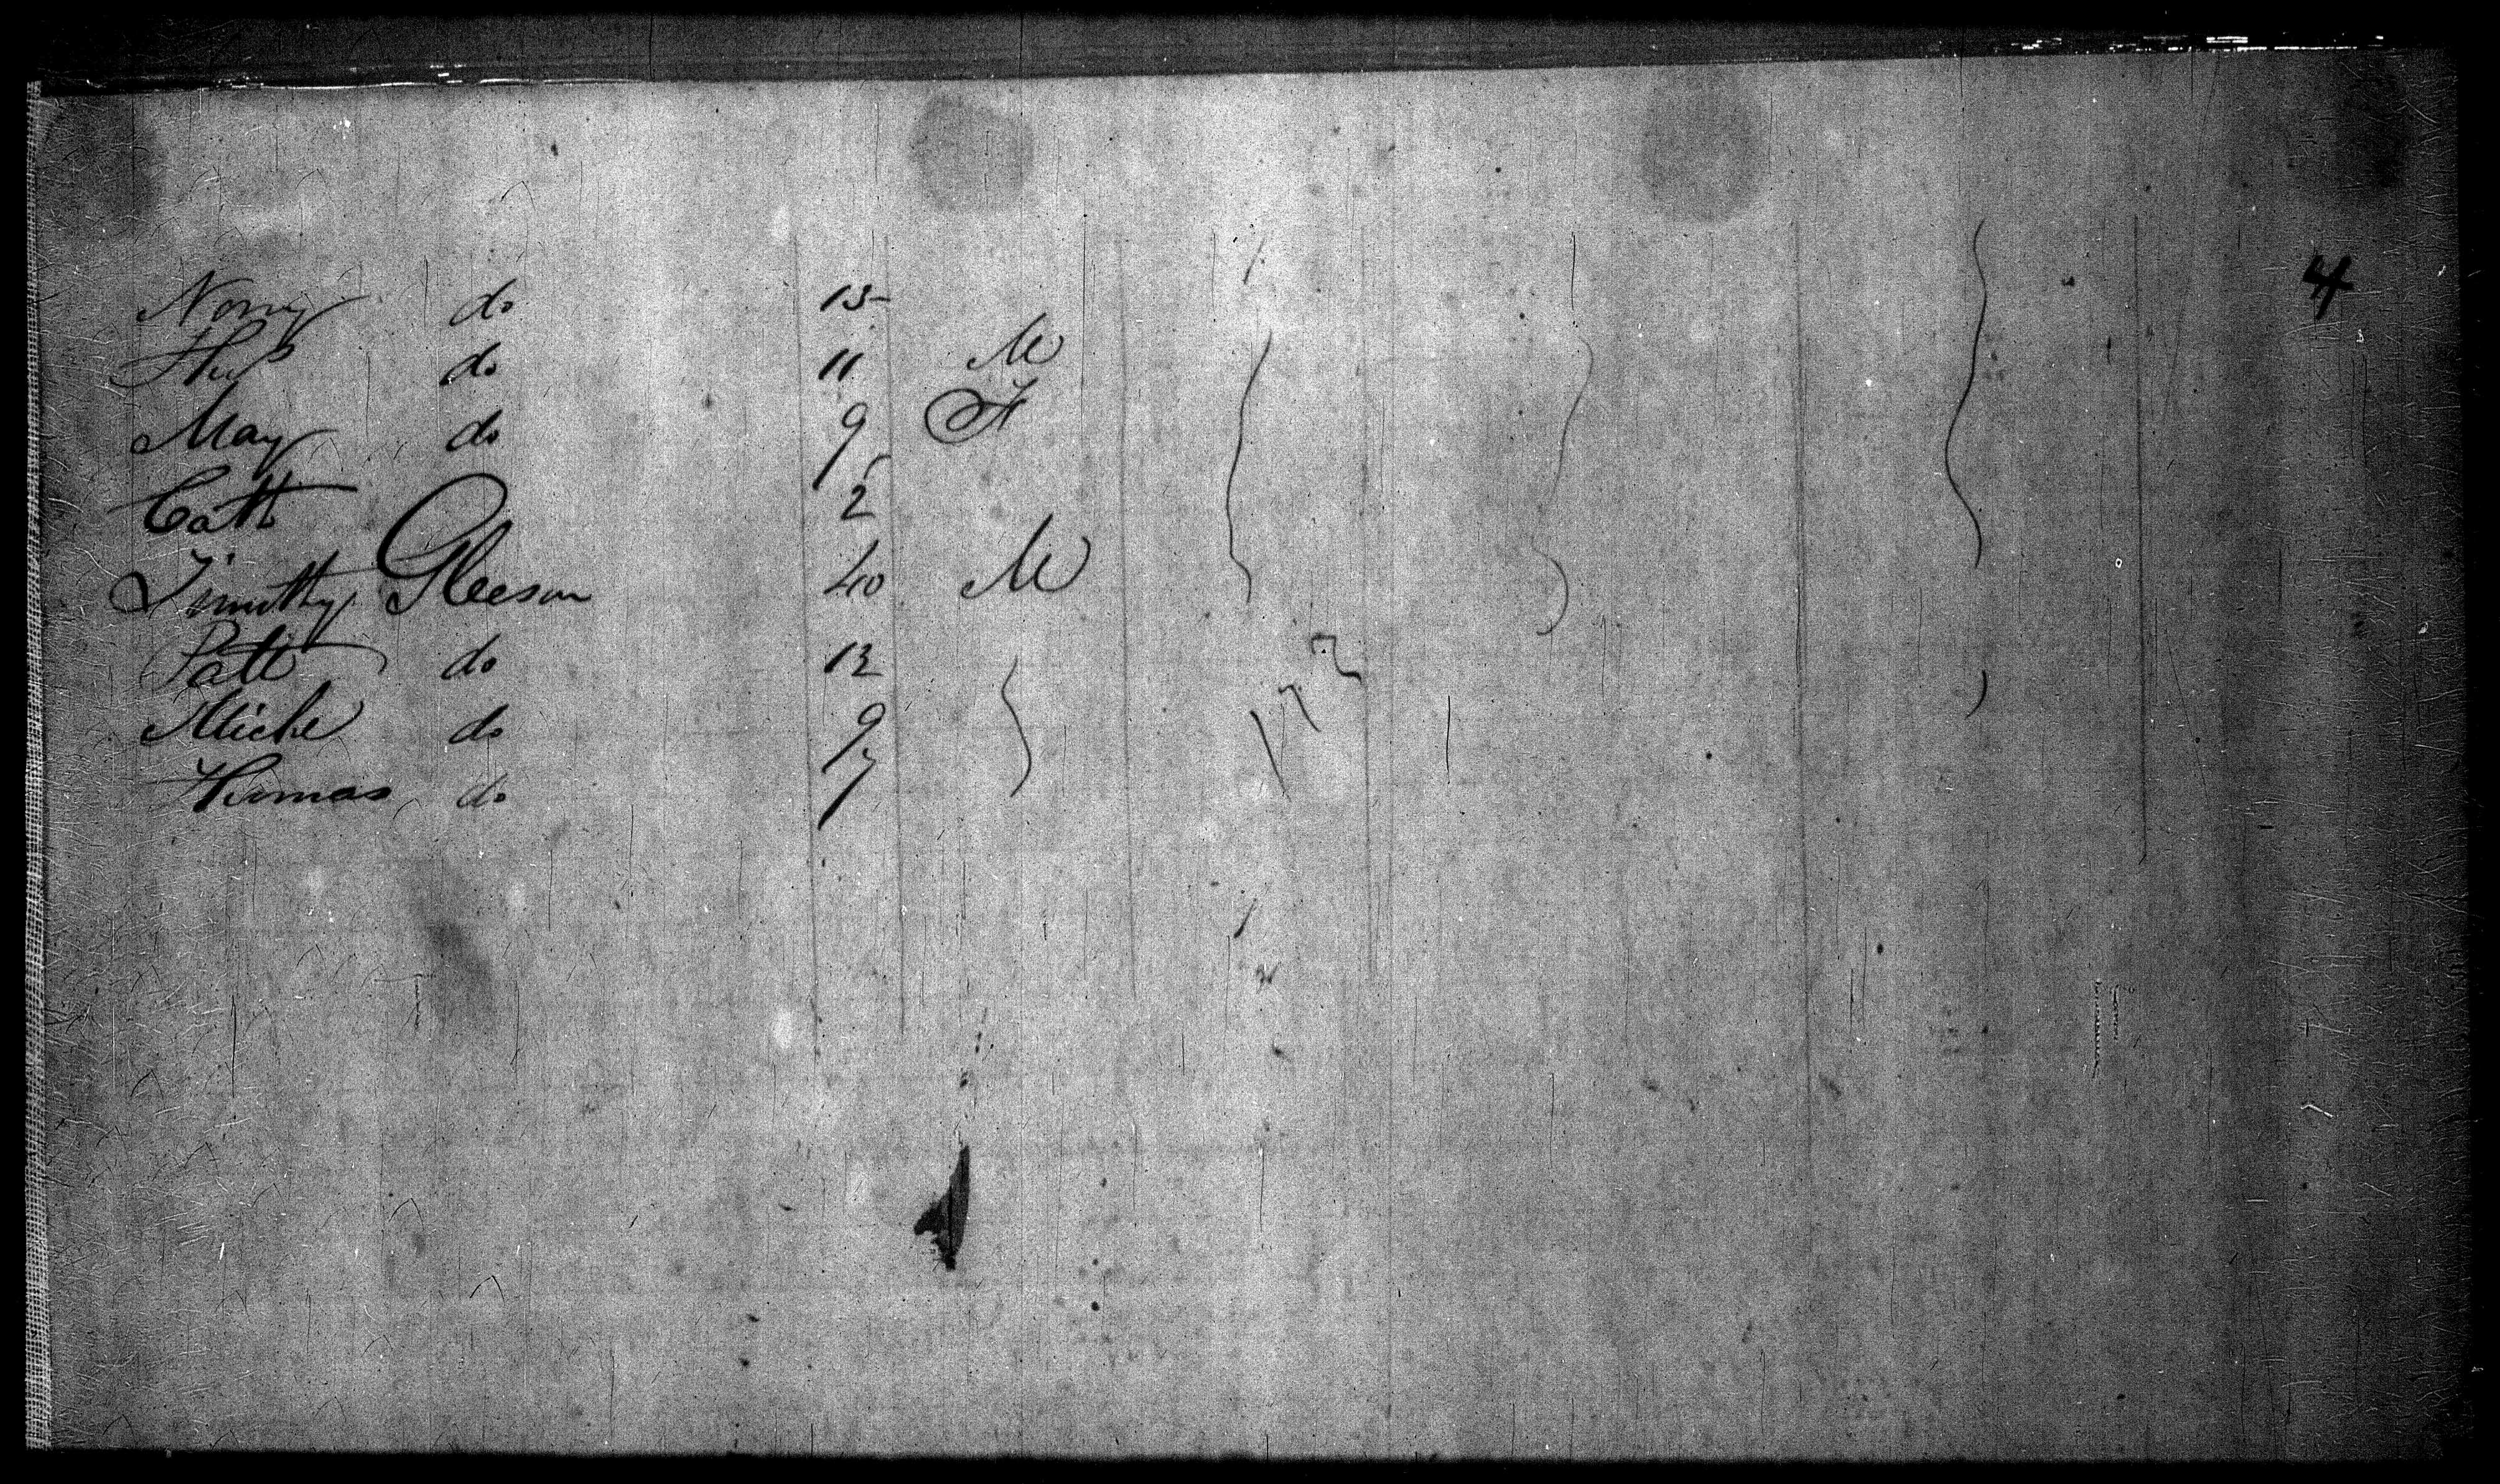 4
Nory do 15
do 11 M
May do 9 F
Cath 2
Timothy Gleeson 40 M
Patt do 12
Miche do 9
Thomas do 7